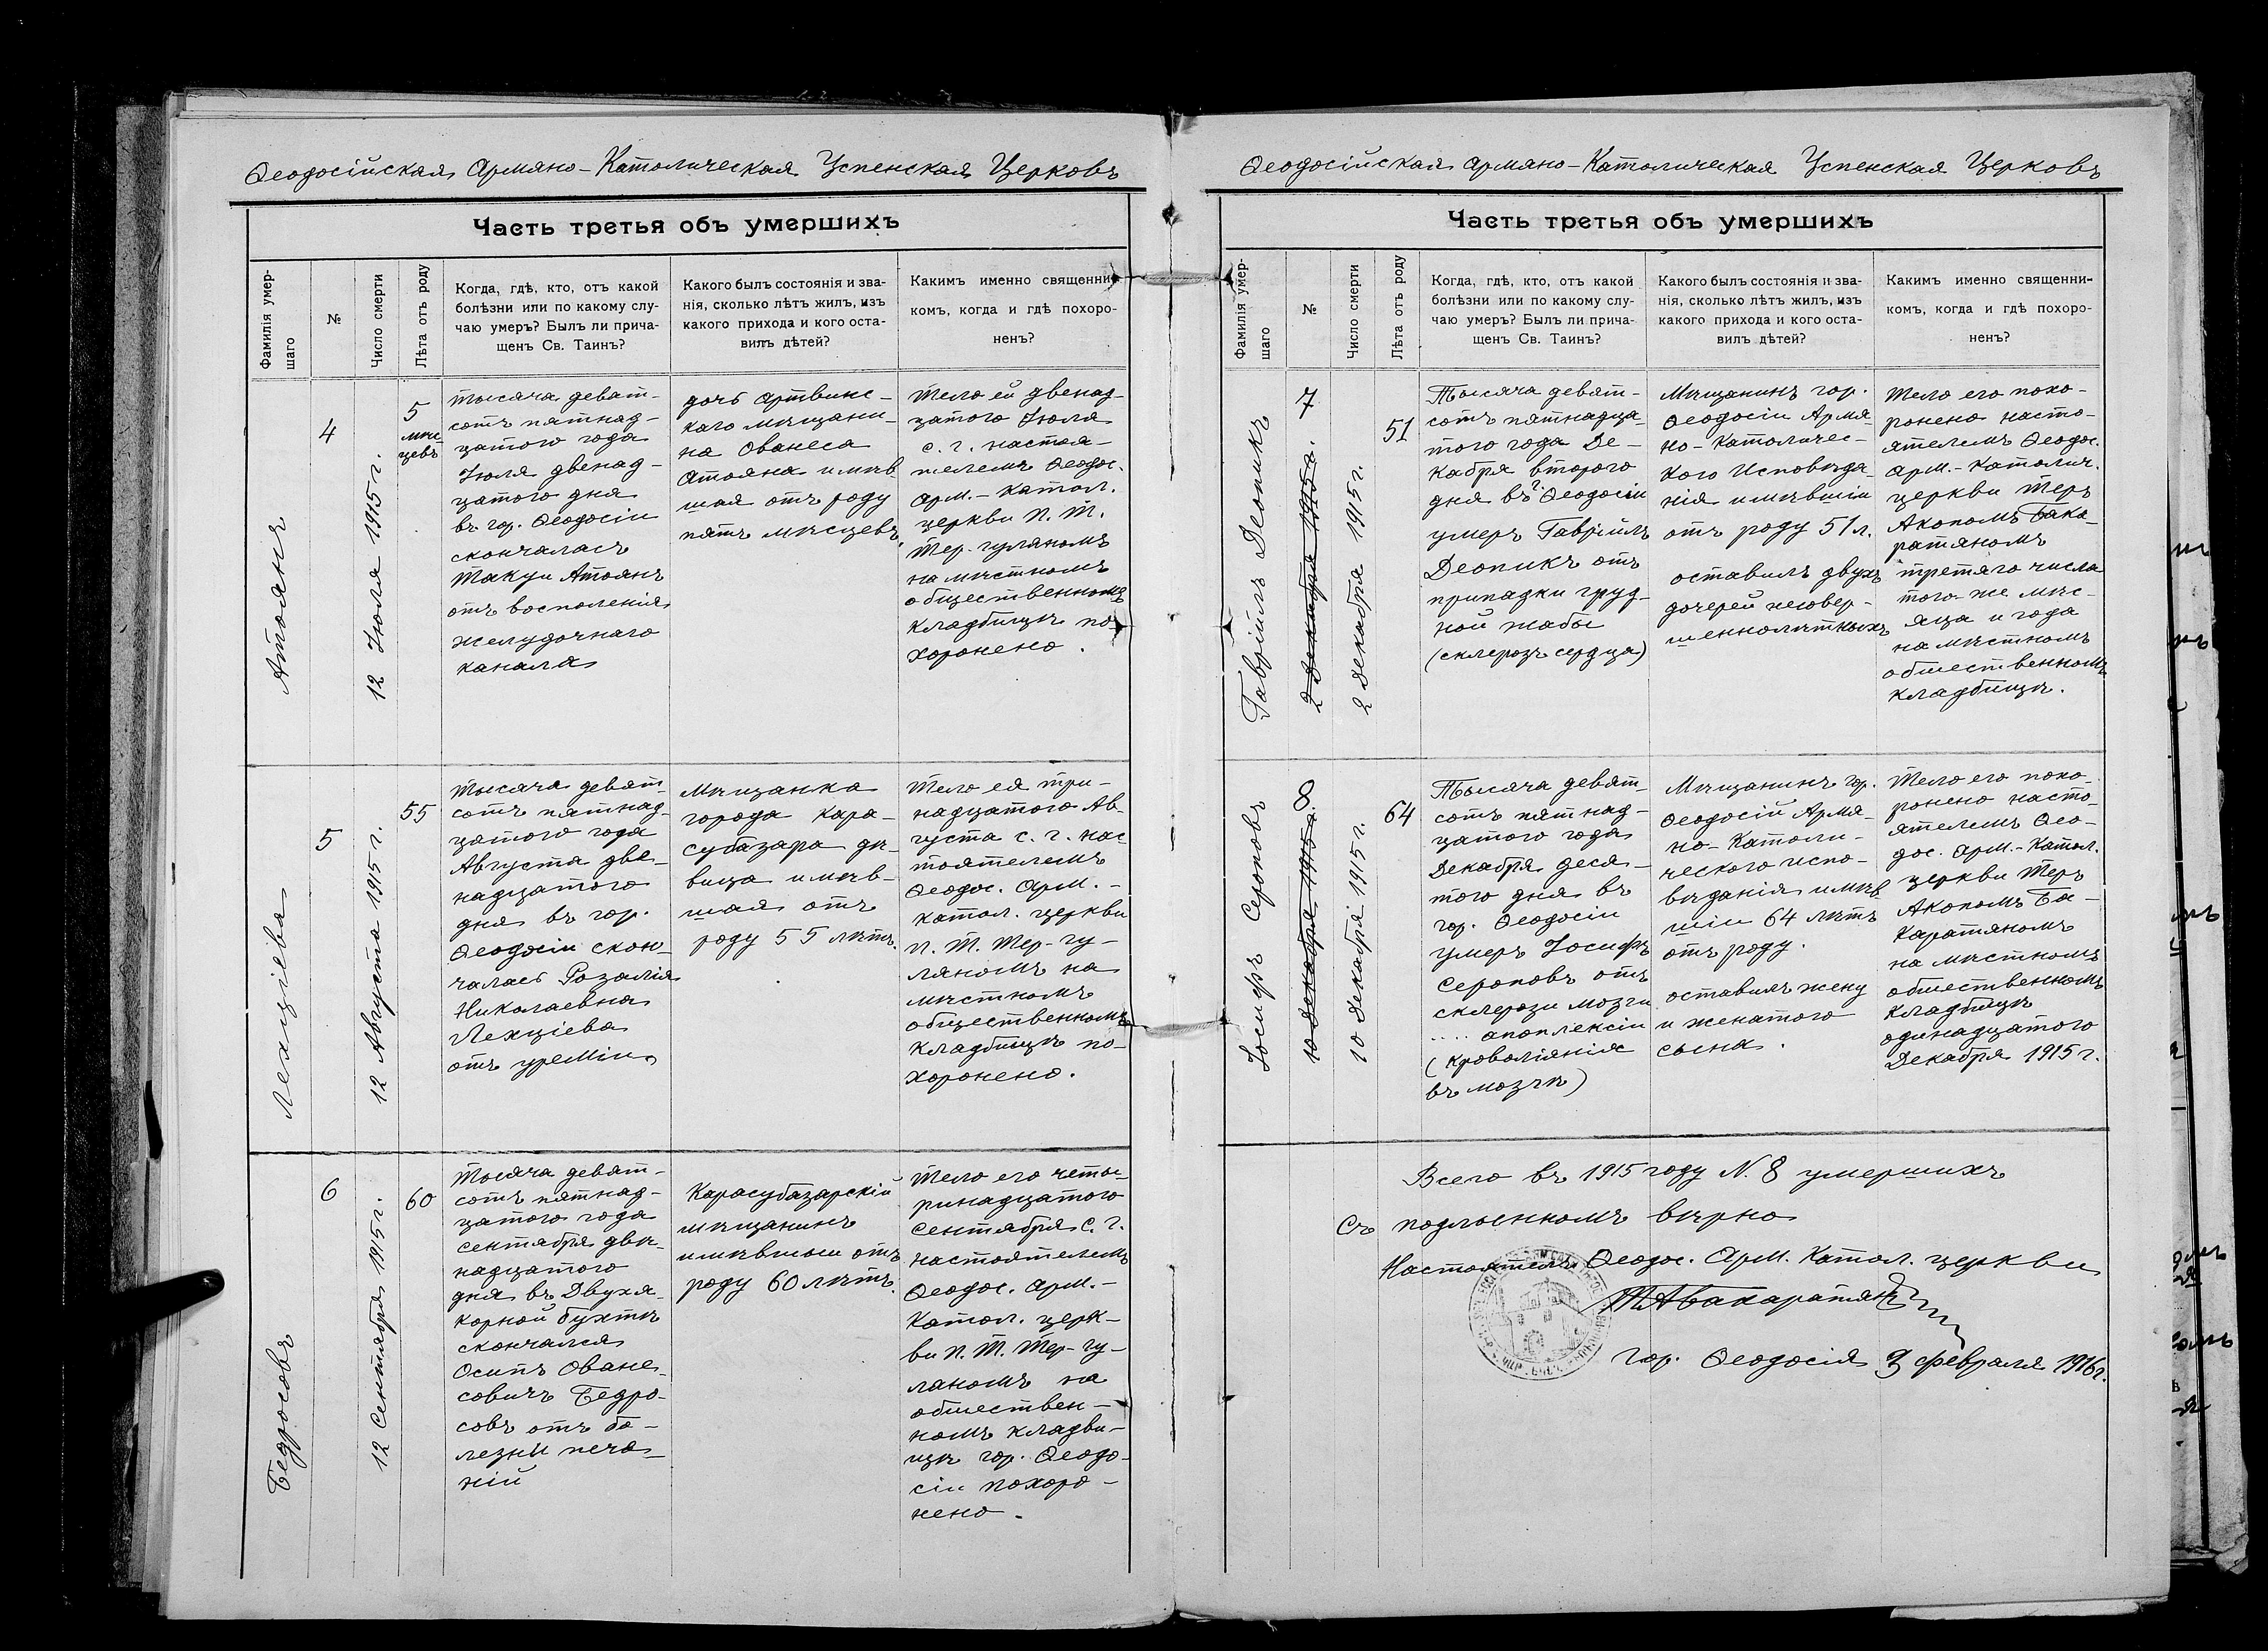 Ѳеодосійская Армяно-Католическая Успенская Церковь
Часть третья объ умершихъ
Фамилія умер-
шаго
№
Число смерти
Лѣта отъ роду
Когда, гдѣ, кто, отъ какой
болѣзни или по какому слу-
чаю умеръ? Былъ ли прича-
щенъ Св. Таинъ?
Какого былъ состоянія и зва-
нія, сколько лѣтъ жилъ, изъ
какого прихода и кого оста-
вилъ дѣтей?
Какимъ именно священни-
комъ, когда и гдѣ похоро-
ненъ?
Атоянъ
4
12 Іюля 1915 г.
5
мѣс-
цевъ
тысяча девят-
сотъ пятнад-
цатого года
Іюля двенад-
цатого дня
въ гор. Ѳеодосіи
скончалась
Такуи Атоянъ
отъ восполенія
желудочнаго
канала
дочь Артвинс-
каго мѣщани-
на Ованеса
Атояна имѣв
шая отъ роду
пять мѣсцевъ.
Тело ей двенад-
цатого Іюля
с. г. настоя-
телемъ Ѳеодос.
Арм.-Катол.
церкви П. Т.
Тер-гуляномъ
на мѣстномъ
общественномъ
кладбищѣ по
хоронено.
Лехціева
5
12 Августа 1915 г.
55
тысяча девят
сотъ пятнад-
цатого года
Августа две-
надцатого
дня въ гор.
Ѳеодосіи скон
чалась Розалія
Николаевна
Лехціева
отъ уреміи
Мѣщанка
города Кара-
субазара дѣ-
вица имѣв-
шая отъ
роду 55 лѣтъ.
Тело ея три-
надцатого Ав-
густа с. г. нас-
тоятелемъ
Ѳеодос. Арм.-
катол. церкви
П. Т. Тер-гу-
ляномъ на
мѣстномъ
общественномъ
кладбищѣ по-
хоронено.
Бедросовъ
6
12 Сентября 1915 г.
60
Тысяча девят-
сотъ пятнад-
цатого года
сентября двѣ-
надцатого
дня въ Двухя-
корной бухтѣ
скончался
Осипъ Оване-
совичъ Бедро-
совъ отъ бо-
лезни пече-
ній
Карасубазарскій
мѣщанинъ
имѣвшой отъ
роду 60 лѣтъ.
Тело его четы-
ринадцатого
сентября с. г.
настоятелемъ
Ѳеодос. Арм.-
Катол. церк-
ви П. Т. Тер-гу-
ляномъ на
обшествен-
номъ кладви-
щѣ гор. Ѳеодо-
сіи похоро-
нено.
Ѳеодосійская Армяно-Католическая Успенская Церковь
Часть третья объ умершихъ
Фамилія умер-
шаго
№
Число смерти
Лѣта отъ роду
Когда, гдѣ, кто, отъ какой
болѣзни или по какому слу-
чаю умеръ? Былъ ли прича-
щенъ Св. Таинъ?
Какого былъ состоянія и зва-
нія, сколько лѣтъ жилъ, изъ
какого прихода и кого оста-
вилъ дѣтей?
Какимъ именно священни-
комъ, когда и гдѣ похоро-
ненъ?
Гавріилъ Деопикъ
7
2 декабря 1915 г.
2 декабря 1915 г.
51
Тысяча девят-
сотъ пятнадца
того года Де-
кабря второго
дня въ г. Ѳеодосіи
умеръ Гавріилъ
Деопикъ отъ
припадки груд-
ной жабы
(склерозъ сердца)
Мѣщанинъ гор.
Ѳеодосіи Армя
но-Католичес-
кого Исповѣда
нія имѣвшіи
отъ роду 51 л.
оставилъ двухъ
дочерей несовер-
шеннолѣтныхъ
Тело его похо-
ронено насто-
ятелемъ Ѳеодос.
Арм.-Католич.
церкви Теръ
Акопомъ Бака-
ратяномъ
третяго числа
того-же мѣс-
яца и года
на мѣстномъ
обшественномъ
кладбищѣ.
Іосифъ Сероповъ
8
10 декабря 1915 г.
10 декабря 1915 г.
64
Тысяча девят
сотъ пятнад-
цатого года
Декабря деся-
того дня въ
гор. Ѳеодосіи
умеръ Іосифъ
Сероповъ отъ
склерози мозги
.... апоплексіи
(кроволіяніе
въ мозгѣ)
Мѣщанинъ гор.
Ѳеодосій Армя-
но-Католи-
ческого испо-
вѣданія имѣв
шіи 64 лѣтъ
отъ роду.
оставилъ жену
и женатого
сына.
Тело его похо-
ронено насто-
ятелемъ Ѳео-
дос. Арм.-Катол.
церкви Теръ
Акопомъ Ба-
каратяномъ
на мѣстномъ
обшественномъ
кладбищѣ
одинадцатого
Декабря 1915 г.
Всего въ 1915 году N. 8 умершихъ
Съ подлиенномъ вѣрно
Настоятель Ѳеодос. Арм. Катол. церкви
гор. Ѳеодосія 9 февраля 1916 г.